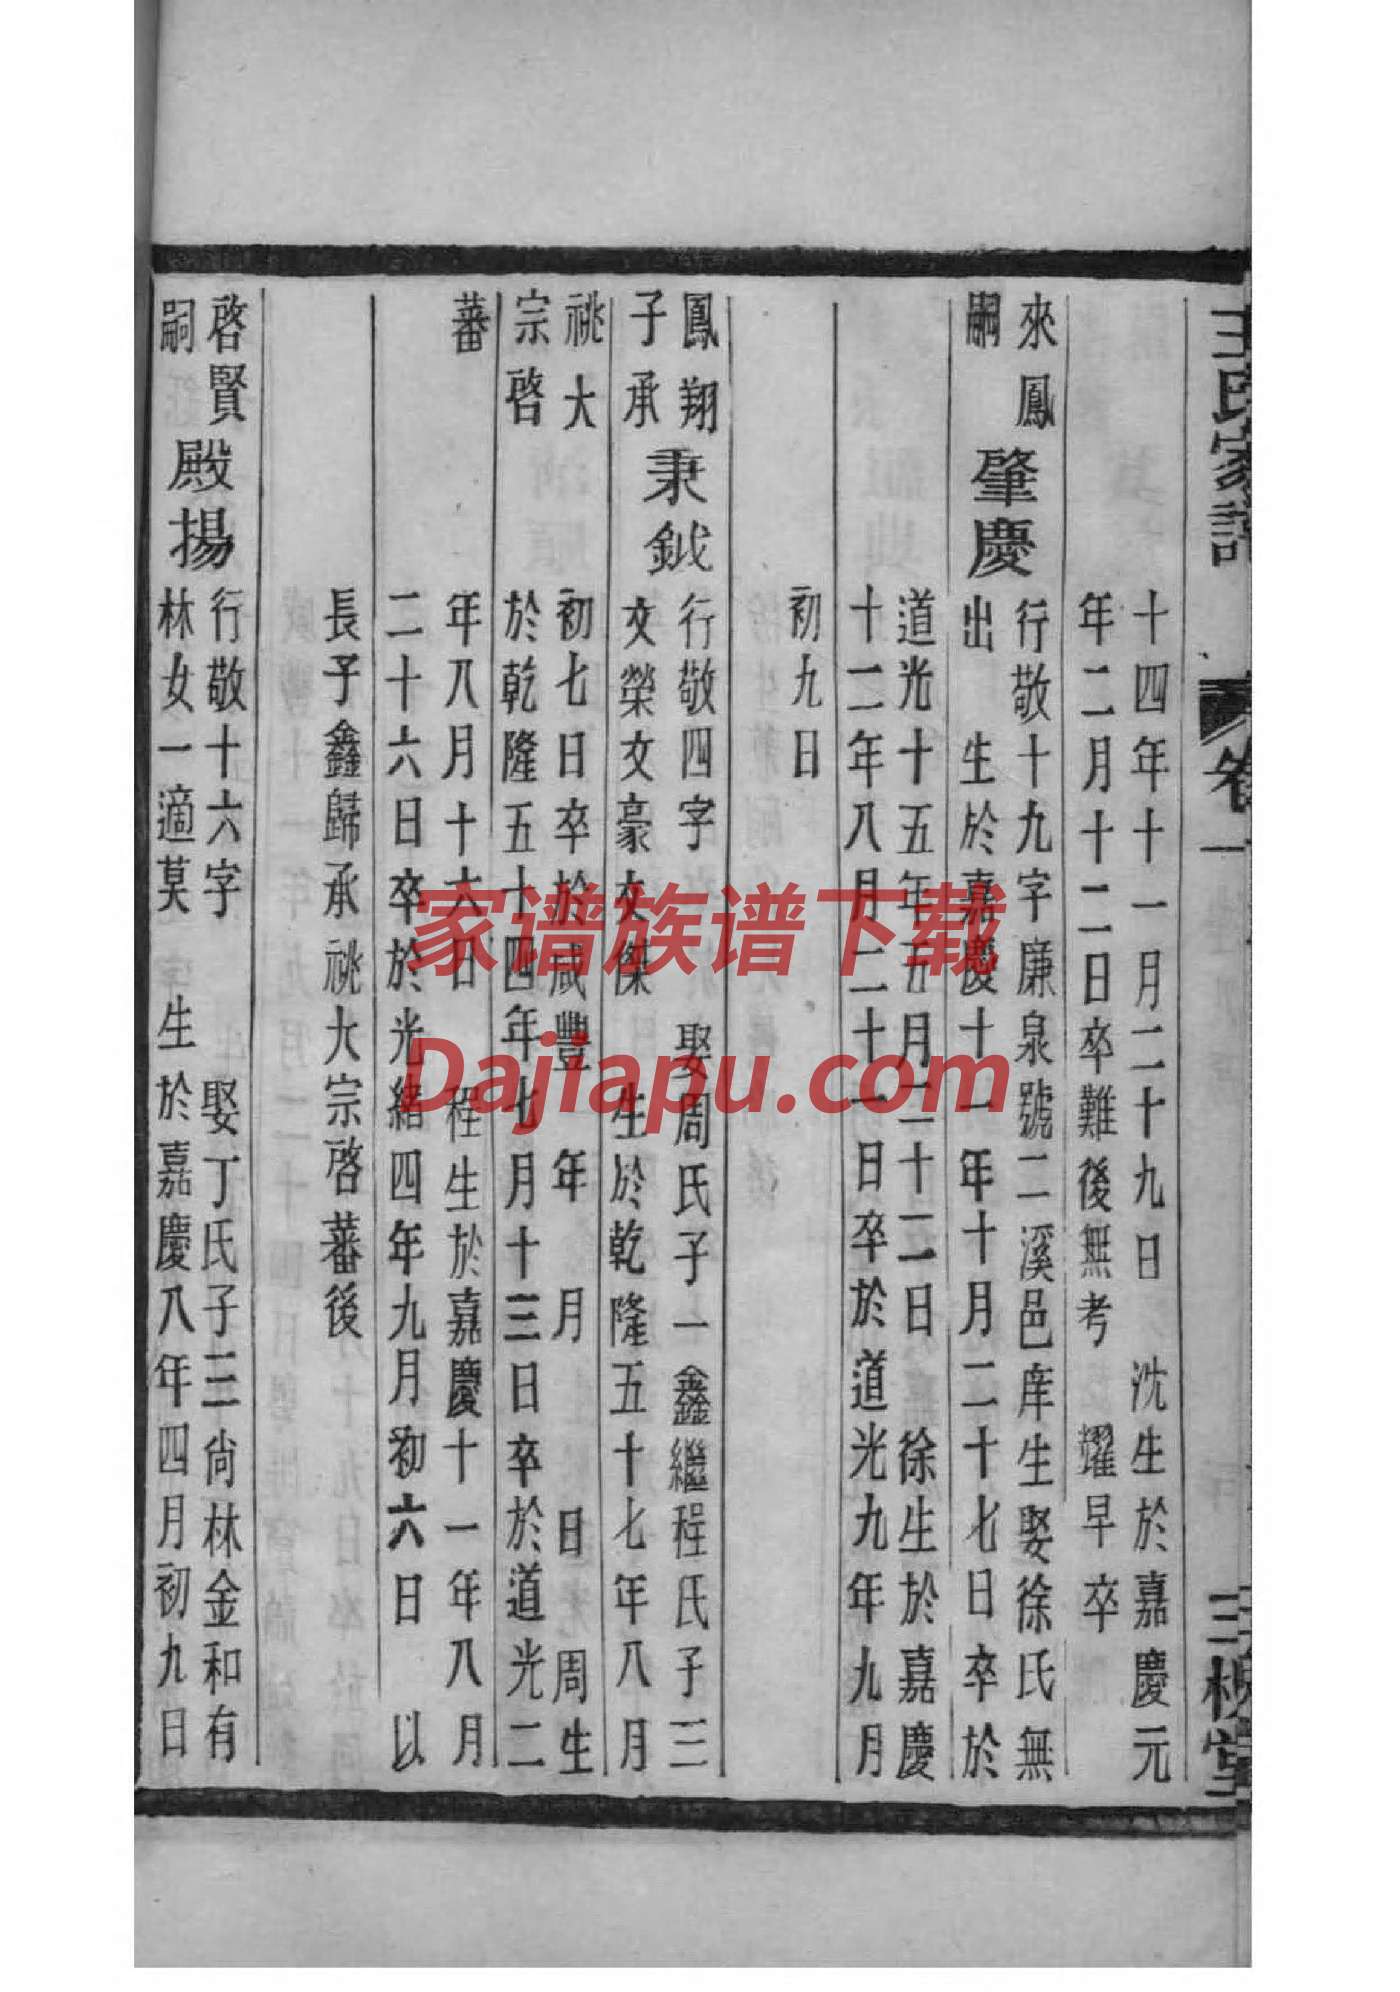 王氏家譜
卷一
三槐堂
十四年十一月二十九日 沈生於嘉慶元
年二月十二日卒難後無考 耀早卒
來鳳
嗣
肇慶
行敬十九字廉泉號二溪邑庠生娶徐氏無
出 生於嘉慶十一年十月二十七日卒於
道光十五年五月二十二日 徐生於嘉慶
十二年八月二十一日卒於道光九年九月
初九日
鳳翔
子承
祧大
宗啓
蕃
秉鉞
行敬四字 娶周氏子一鑫繼程氏子三
文榮文豪文傑 生於乾隆五十七年八月
初七日卒於咸豐 年 月 日 周生
於乾隆五十四年七月十三日卒於道光二
年八月十六日 程生於嘉慶十一年八月
二十六日卒於光緒四年九月初六日 以
長子鑫歸承祧大宗啓蕃後
啓賢
嗣
殿揚
行敬十六字 娶丁氏子三尙林金和有
林女一適莫 生於嘉慶八年四月初九日
家谱族谱下载
Dajiapu.com